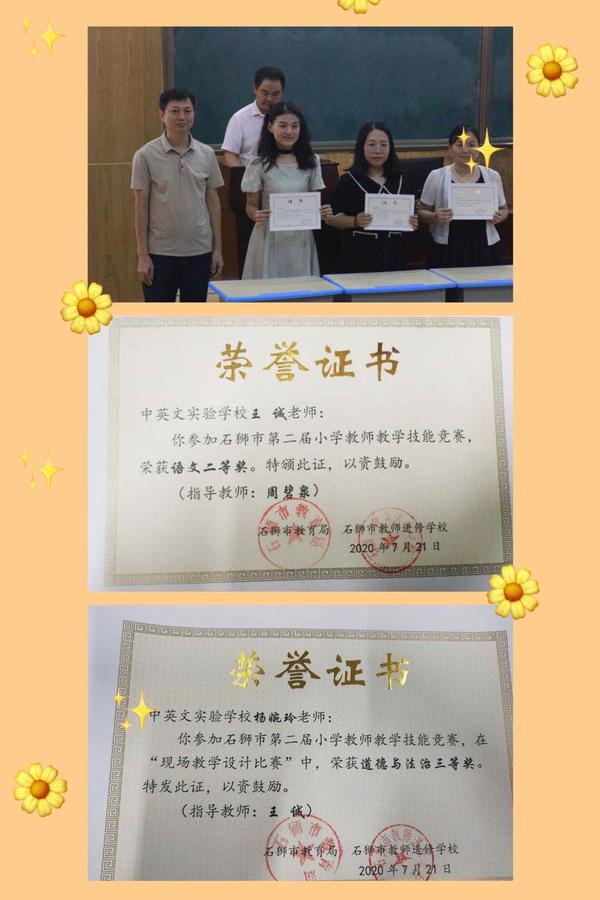 荣誉证书
中英文实验学校王 诚老师：
你参加石狮市第二届小学教师教学技能竞赛，
荣获语文二等奖。特颁此证，以资鼓励。
（指导教师：周碧泉）
石狮市教育局 石狮市教师进修学校
2020年7月21日
荣誉证书
中英文实验学校杨婉玲老师：
你参加石狮市第二届小学教师教学技能竞赛，在
“现场教学设计比赛”中，荣获道德与法治三等奖。
特发此证，以资鼓励。
（指导教师：王 诚）
石狮市教育局 石狮市教师进修学校
2020年7月21日